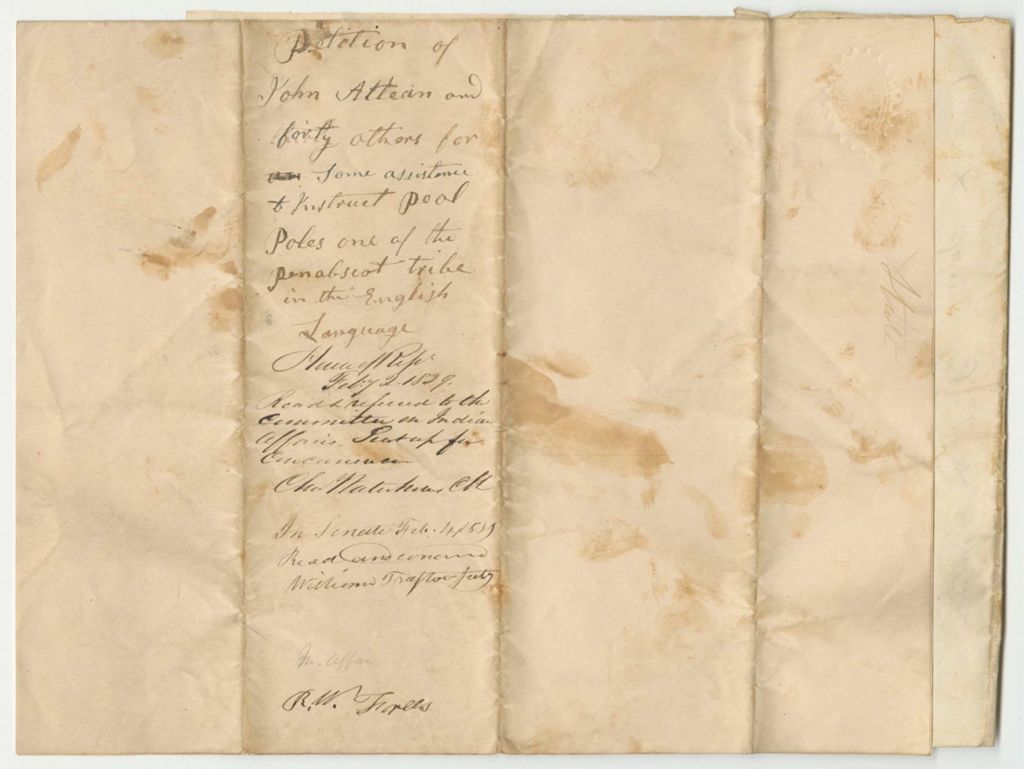 Petition of
John Attean and
forty others for
Some assistance
to Instruct peol
Poles one of the
penabscot tribe
in the English
Language
House of Reps
Feby 2. 1839.
Read & referred to the
Committee on Indian
affairs. Sent up for
Concurrence
Chs Waterhouse, Clk
In Senate Feb. 4, 1839
Read and concurred
William Trafton Secty
In. Affairs
R. W.
State